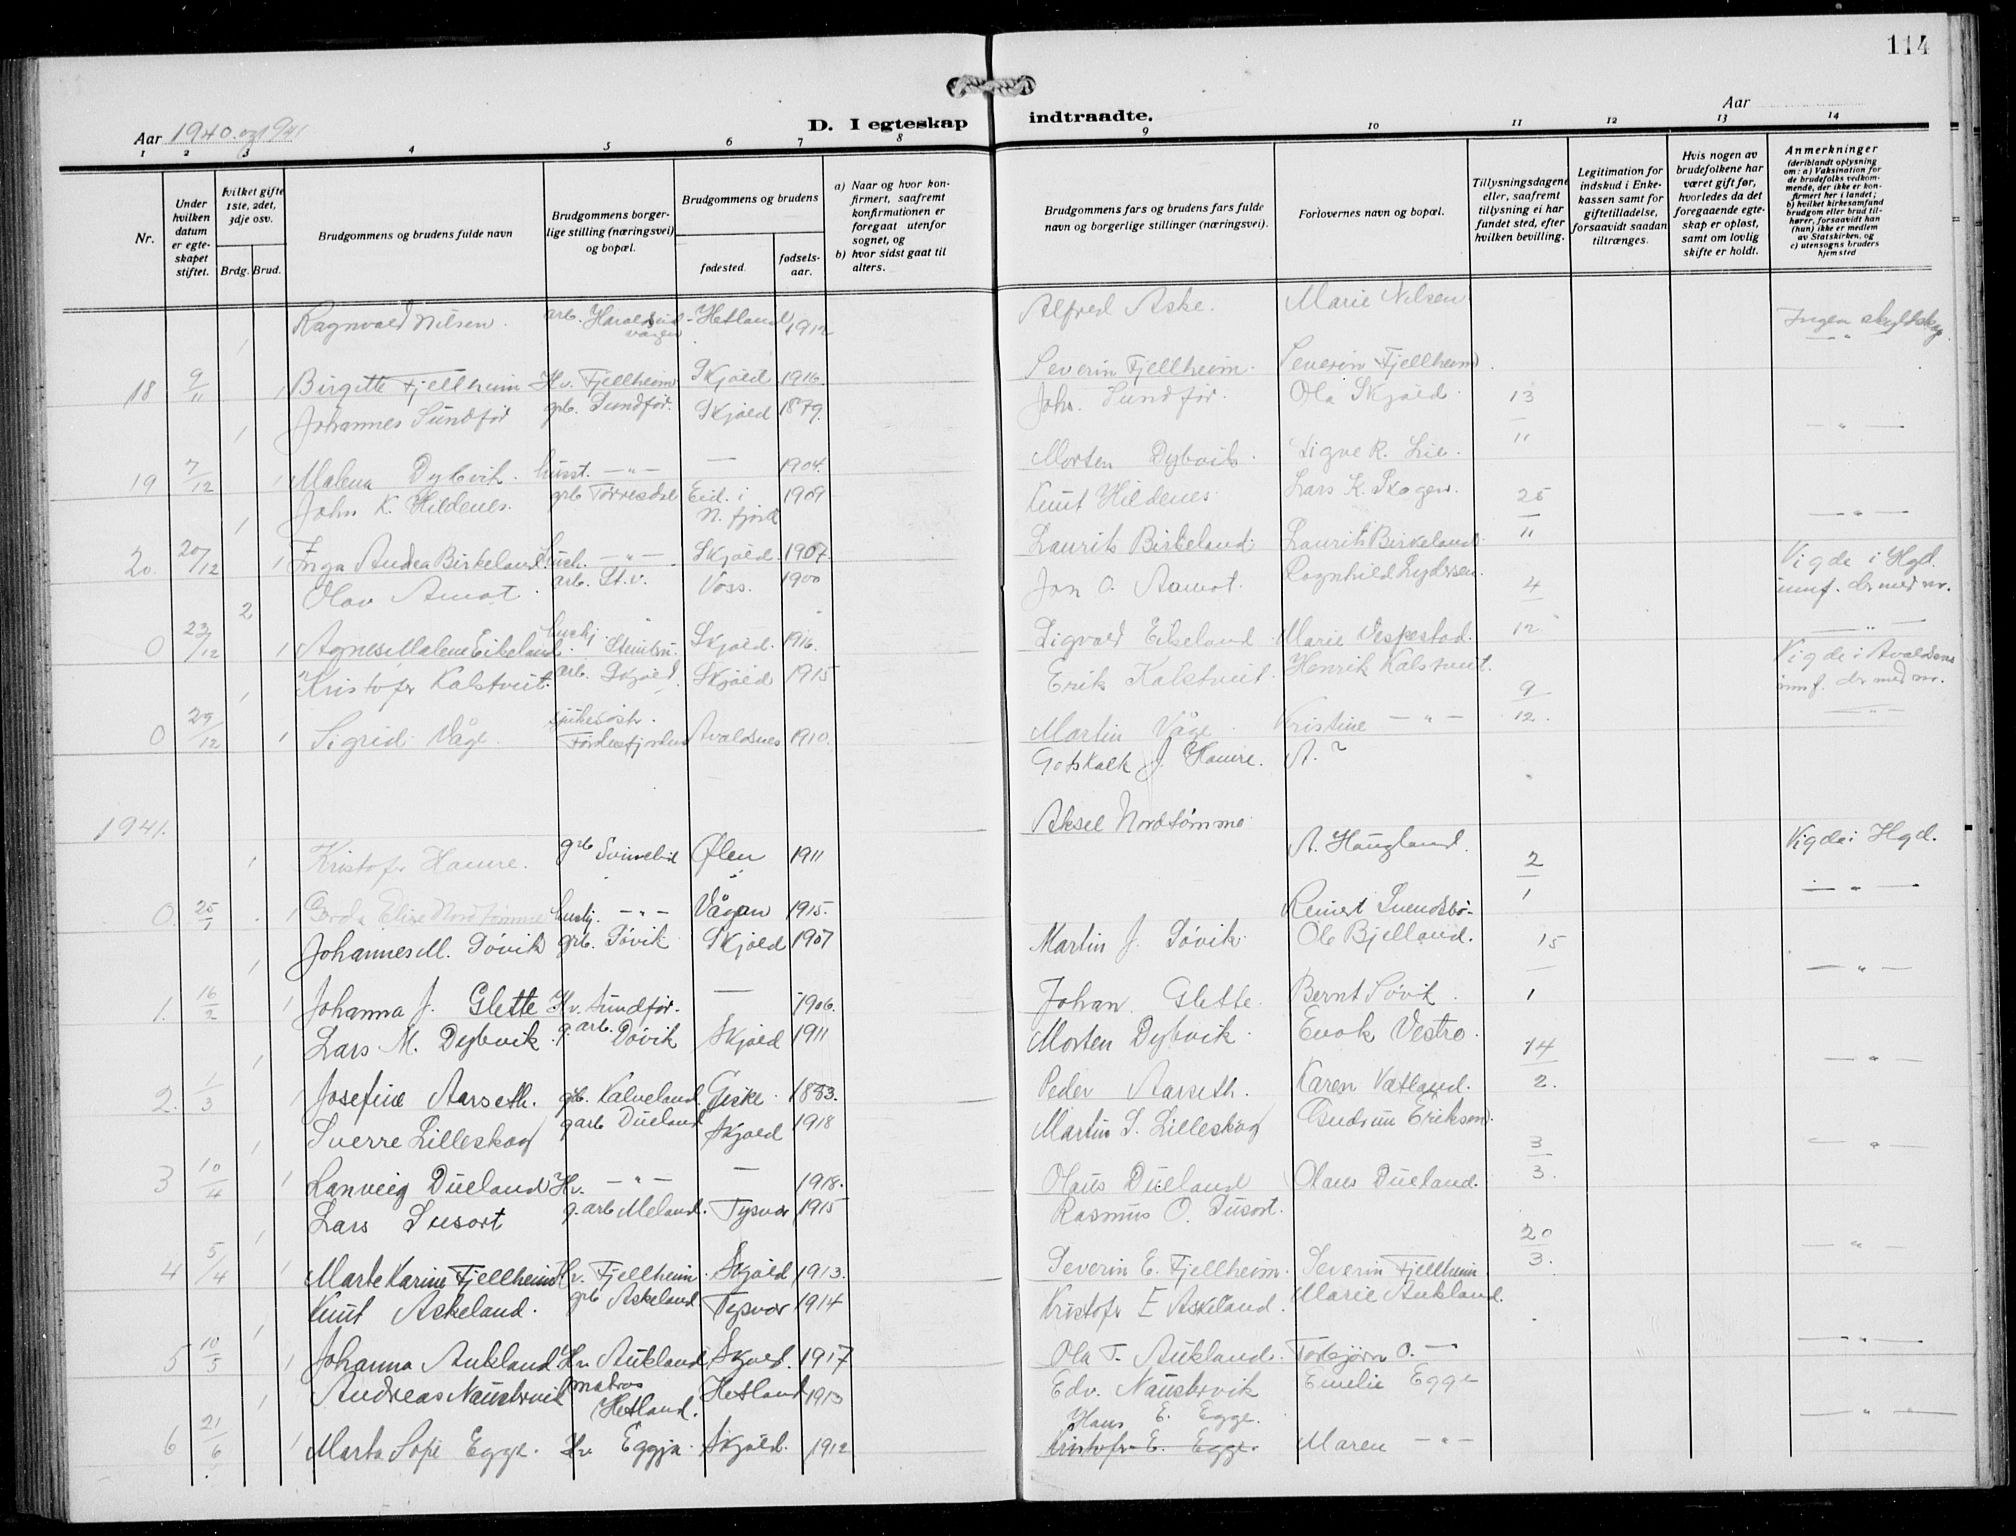 114
Aar 1940 og 1941
D. I egteskap indtraadte.
Aar
1 2 3 4 5 6 7 8 9 10 11 12 13 14
Nr.
Under hvilken datum er egteskapet stiftet.
hvilket gifte 1ste, 2det, 3dje osv.
Brdg. Brud.
Brudgommens og brudens fulde navn
Brudgommens borgerlige stilling (næringsvei) og bopæl.
Brudgommens og brudens
fødested.
fødselsaar.
a) Naar og hvor konfirmert, saafremt konfirmationen er foregaat utenfor sognet, og
b) hvor sidst gaat til alters.
Brudgommens fars og brudens fars fulde navn og borgerlige stillinger (næringsvei).
Forlovernes navn og bopæl.
Tillysningsdagene eller, saafremt tillysning ei har fundet sted, efter hvilken bevilling.
Legitimation for indskud i Enkekassen samt for giftetilladelse, forsaavidt saadan tiltrænges.
Hvis nogen av brudefolkene har været gift før, hvorledes da det foregaaende egteskap er opløst, samt om lovlig skifte er holdt.
Anmerkninger (deriblandt oplysning om: a) Vaksination for de brudefolks vedkommende, der ikke er konfirmert her i landet; b) hvilket kirkesamfund brudgom eller brud tilhører, forsaavidt han (hun) ikke er medlem av Statskirken, og c) utensogns bruders hjemsted
1 Ragnvald Nilsen. arb. Haraldseidvågen Hetland 1912 Alfred Aske. Marie Nilsen Ingen skyldskap
18 9/11 1 Birgitte Fjellheim Hv. Fjellheim Skjold 1916 Severin Fjellheim. Severin Fjellheim. — " —
1 Johannes Sundfør grb. Sundfør. Skjold 1879. Joh. Sundfør. Ola Skjold. 13/11
19 7/12 1 Malena Dybvik. husst. — " — — 1904. Morten Dybvik. Sigve R. Lie. — " —
1 John K. Hildenes. grb Torresdal Eid i N. fjord 1909 Knut Hildenes. Lars K. Skogen. 25/11
20. 20/12 1 Inga Andrea Birkeland. — " — Skjold. 1907. Laurits Birkeland. Laurits Birkeland. — " —
2 Olav Amot. arb. St.v. Voss. 1900 Jon O. Aamot. Ragnhild Lydersen. 4/12 Vigde i Hgd. innf. der med nr.
0 23/12 1 Agnes Malene Eikeland Skjold. 1916. Sigvald Eikeland Marie Vespestad. — " —
1 Kristofer Kalstveit. arb. Skjold. Skjold 1915 Erik Kalstveit. Henrik Kalstveit. 9/12. Vigde i Avaldsnes innf. der med nr.
0 29/12 1 Sigrid Våge. Førdesfjorden Avaldsnes 1910. Martin Våge. Kristine — " — — " —
Gotskalk J. Hamre. A. ?
1941.
Aksel Nordtømme
1 Kristofer Hamre. grb Ølen 1911 A. Haugland. 2/1 Vigde i Hgd.
0. 25/1 1 Gerda Elise Nordtømme husbj. — " — Vågan 1915. Reinert Svendsbø. — " —
1 Johannes M. Søvik grb. Søvik Skjold 1907 Martin J. Søvik. Ole Bjelland. 15/1
1. 16/2 1 Johanna J. Glette Hv. Sundfør. — 1906. Johan Glette. Bernt Søvik. — " —
1 Lars M. Dybvik. g. arb. Døvik Skjold 1911 Morten Dybvik. Enok Vestro. 14/2.
2. 1/3 1 Josefine Aarseth. grb. Kalveland Giske. 1883. Peder Aarseth. Karen Vatland. — " —
1 Sverre Lilleskog garb Dueland Skjold 1918 Martin S. Lilleskog Gudrun Eriksen. 3/3.
3 10/4 1 Lanveig Dueland Hv. — " — — 1918. Olaus Dueland Olaus Dueland. — " —
1 Lars Susort g. arb Meland. Tysvær 1915 Rasmus O. Susort. 20/3.
4 5/4 1 Marte Karine Fjellheim Hv. Fjellheim. Skjold 1913. Severin E. Fjellheim. Severin Fjellheim — " —
1 Knut Askeland. grb Askeland Tysvær 1914 Kristofer E Askeland. Marie Aukland.
5 10/5 1 Johanna Aukland Hv Aukland Skjold. 1917 Ola T. Aukland. Torbjørn O. — " — — " —
1 Andreas Naustervik matros Hetland. Hetland 1913 Edv. Naustervik Emelie Egge
Hans E. Egge.
6 21/6 1 Marta Sofie Egge. Hv. Eggja Skjold. 1912 Kristofer E. Egge. Maren — " — — " —